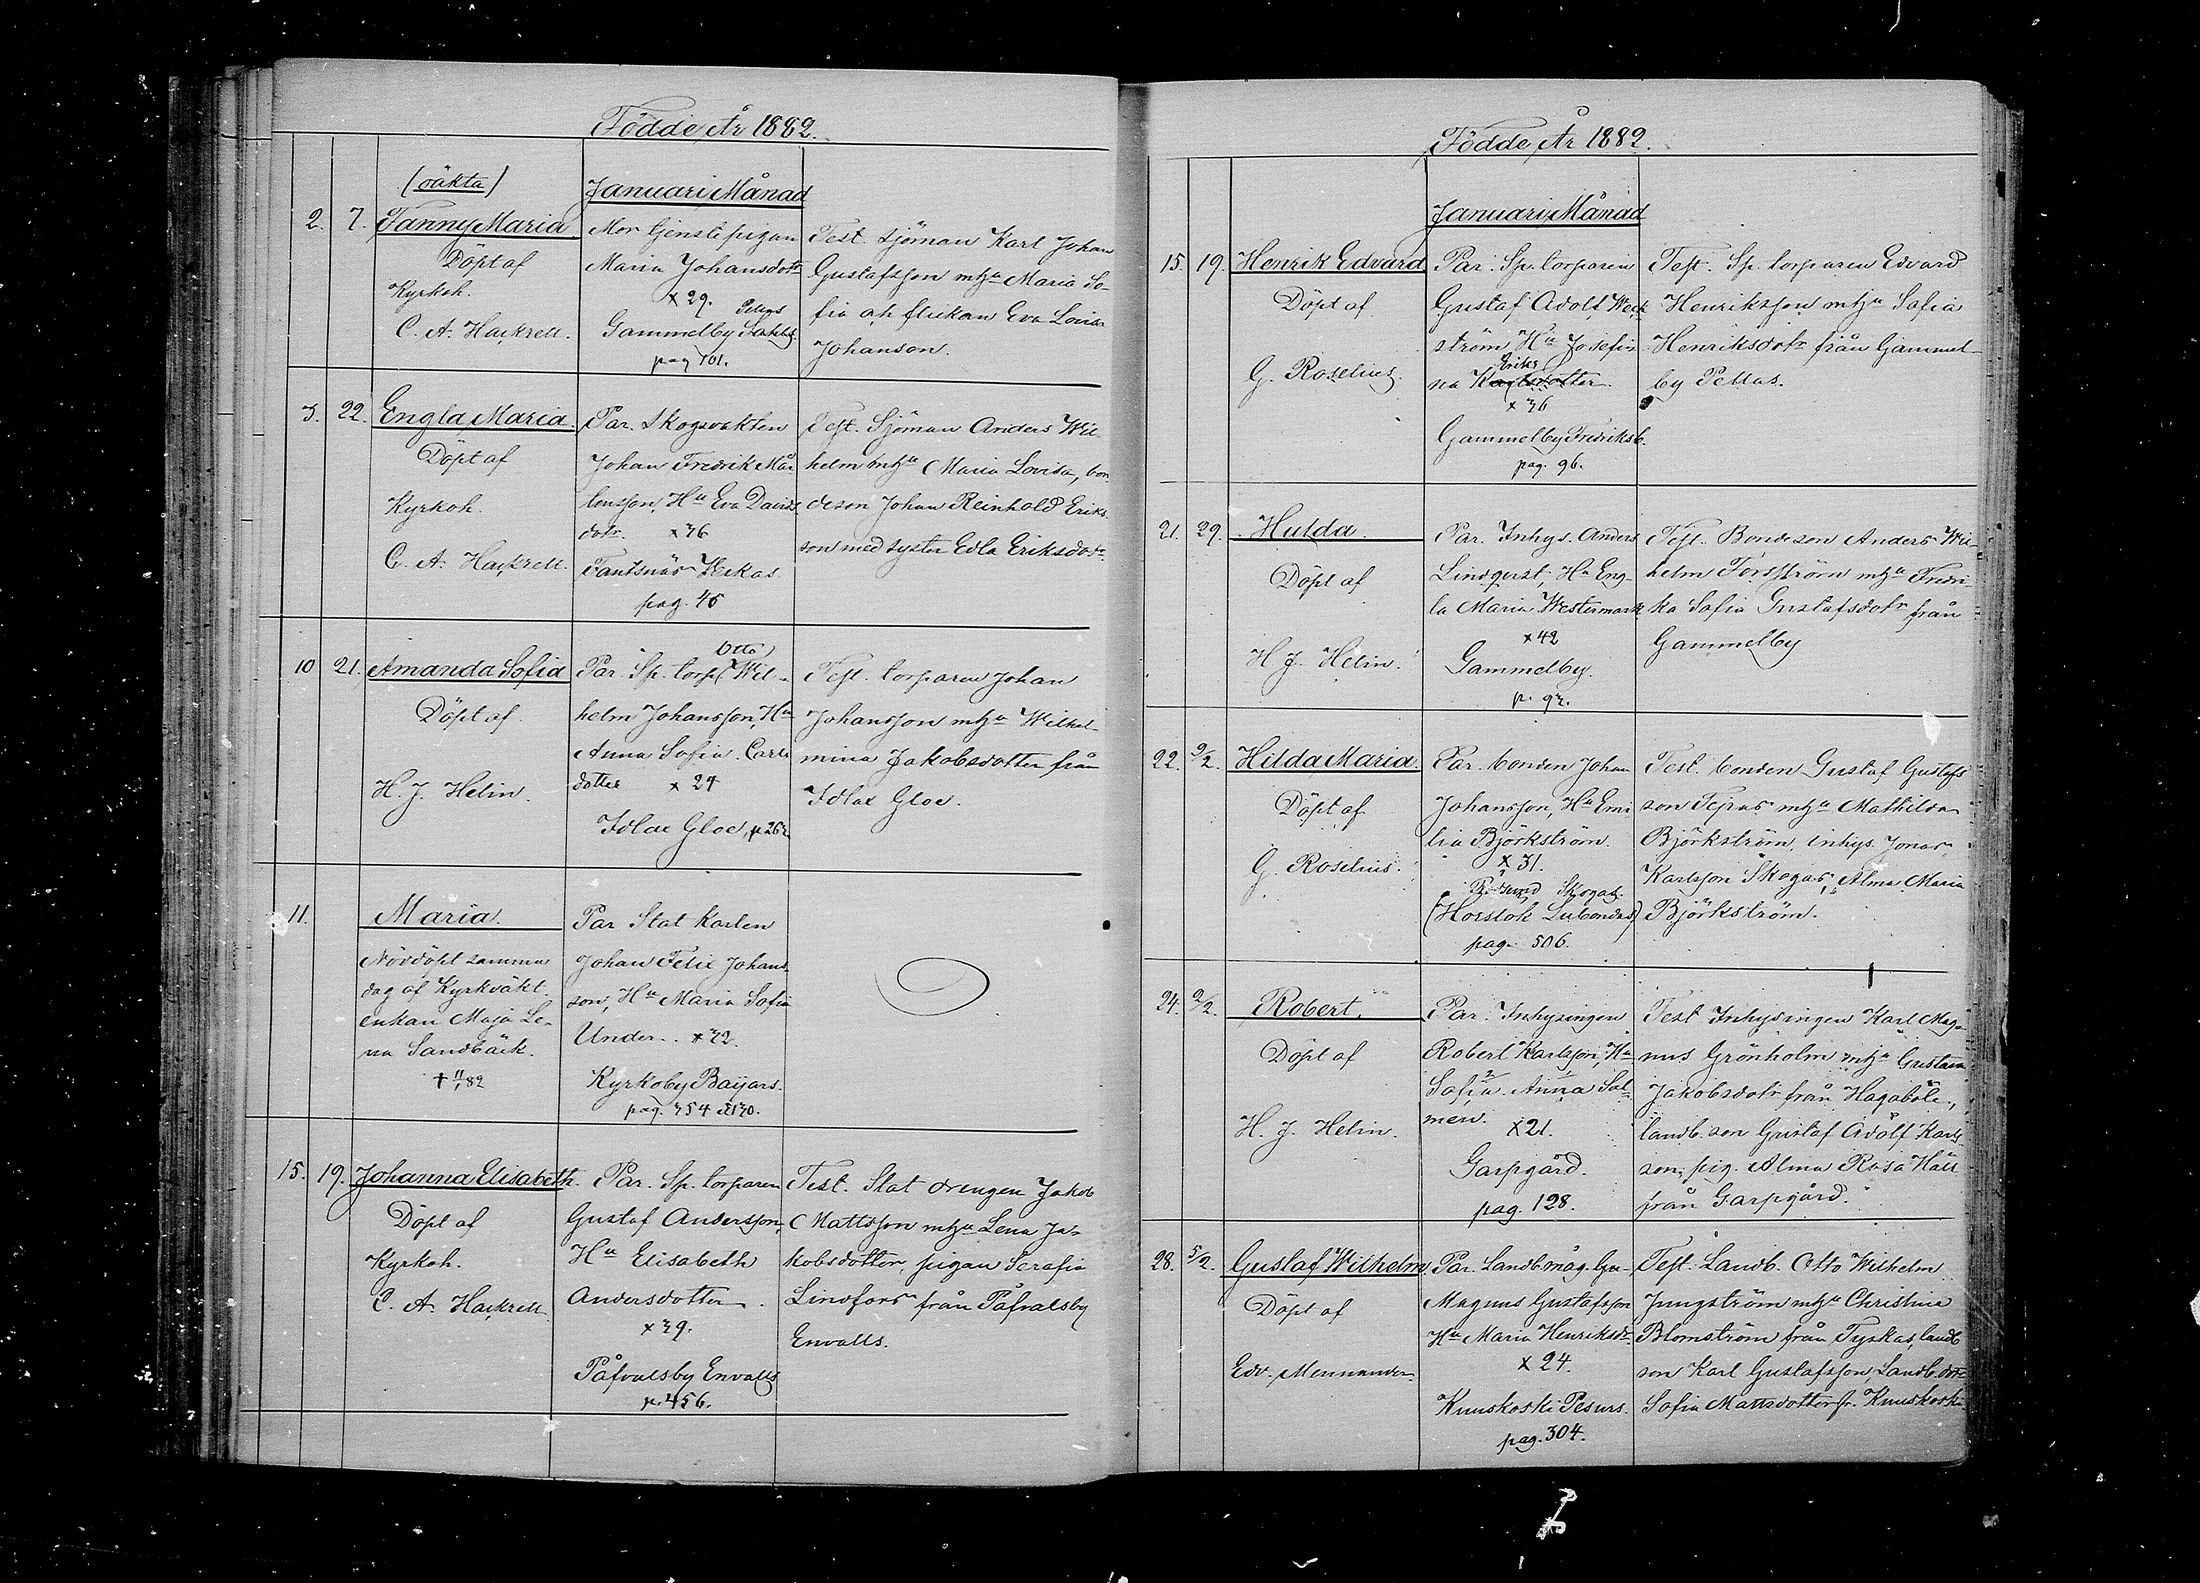 Födde År 1882.
Januari Månad
2. 7.
(oäkta)
Fanny Maria
Döpt af
Kyrkoh.
C. A. Hackzell.
Mor tjenstepigan
Maria Johansdotr
x 29.
Pellas
Gammelby Stahls
pag 101.
Test. Sjöman Karl Johan
Gustafsson mhu Maria So-
fia och flickan Eva Lovisa
Johanson.
3. 22.
Engla Maria.
Döpt af
Kyrkoh.
C. A. Hackzell.
Par. Skogsvakten
Johan Fredrik Mår
tensson, Hu Eva Davids
dotr. x 36
Fantsnäs Heikas
pag. 45
Test. Sjöman Anders Wil
helm mhu Maria Lovisa, bon
deson Johan Reinhold Eriks
son med syster Edla Eriksdotr.
10 21.
Amanda Sofia
Döpt af
H. J. Helin.
Otto
Par. Sp. torp. Wil-
helm Johansson, Hu
Anna Sofia Carls
dotter x 24
Idlax Gloe, p. 262
Test. torparen Johan
Johansson mhu Wilhel-
mina Jakobsdotter från
Idlax Gloe.
11.
Maria.
Nöddöpt samma
dag af Kyrkväkt.
enkan Maja Le-
na Sandbäck.
† 11/1 82
Par Stat karlen
Johan Felix Johans
son, Hu Maria Sofia
Under.. x 32.
Kyrkoby Baijars.
pag. 354 d 130.
15. 19.
Johanna Elisabeth.
Döpt af
Kyrkoh.
C. A. Hackzell
Par. Sp. torparen
Gustaf Andersson,
Hu Elisabeth
Andersdotter.
x 39.
Påfvalsby Envalls
p. 456.
Test. Stat drengen Jakob
Mattsson mhu Lena Ja-
kobsdotter, pigan Serafia
Lindfors från Påfvalsby
Envalls.
Födde År 1882.
Januari Månad
15. 19.
Henrik Edvard
Döpt af
G. Roselius.
Par. Sp. torparen
Gustaf Adolf Weck
ström Hu Josefi-
Eriks
na Karlsdotter.
x 36
Gammelby Fredriksb.
pag. 96.
Test. Sp. torparen Edvard
Henriksson mhu Sofia
Henriksdotr från Gammel-
by Pellas.
21. 29.
Hulda.
Döpt af
H. J. Helin.
Par. Inhys. Anders
Lindqvist, Hu Eng-
la Maria Westermark
x 42
Gammelby.
p. 93.
Test. Bondeson Anders Wil-
helm Forsström mhu Fredri-
ka Sofia Gustafsdotr från
Gammelby
22. 9/2.
Hilda Maria.
Döpt af
G. Roselius.
Par. bonden Johan
Johansson, Hu Emi
lia Björkström.
x 31.
Skogas
(Horslok Lubondas)
pag. 506.
Test. bonden Gustaf Gustafs
son Tejpas mhu Mathilda
Björkström, inhys. Jonas
Karlsson Skogas, Alma Maria
Björkström.
24. 2/2.
Robert.
Döpt af
H. J. Helin.
Par. Inhysingen
Robert Karlsson, Hu
Sofia Anna Sal-
men. x 21.
Garpgård.
pag. 128.
Test Inhysingen Karl Mag-
nus Grönholm mhu Gustava
Jakobsdotr från Hagaböle,
landb. son Gustaf Adolf Karls
son, pig. Alma Rosa Häll
från Garpgård.
28. 5/2.
Gustaf Wilhelm.
Döpt af
Edv. Mennander.
Par. Landb. måg. Gu-
Magnus Gustafsson
Hu Maria Henriksdr.
x 24
Kuuskoski Pesurs.
pag. 304.
Test. Landb. Otto Wilhelm
Jungström mhu Christina
Blomström från Tyskas, landb
son Karl Gustafsson, Landb. dotr
Sofia Mattsdotter fr. Kuuskoski